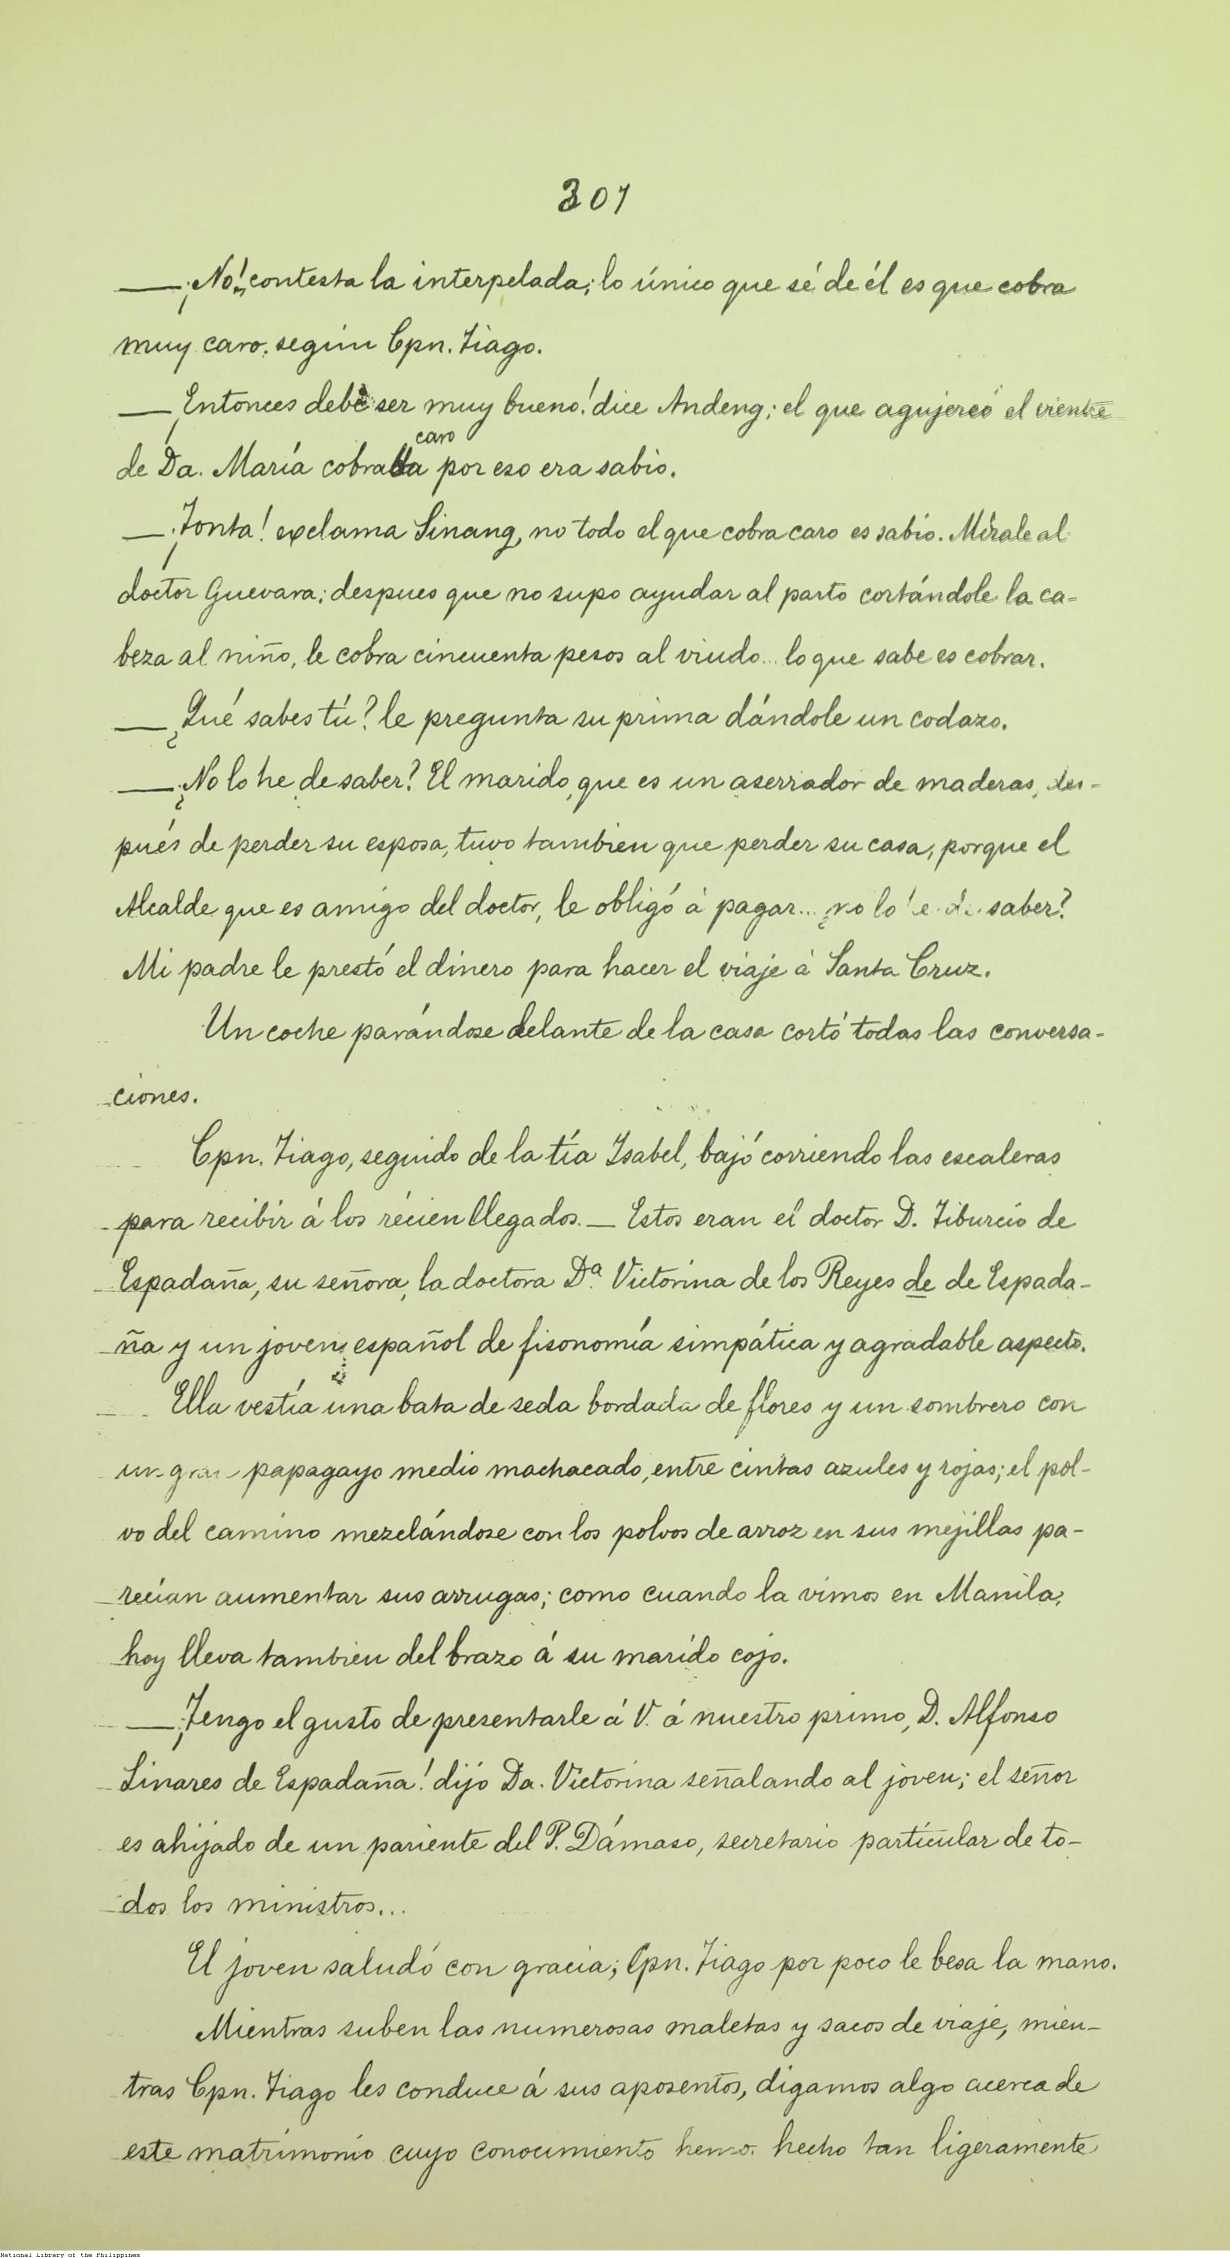 301
— ¡No! contesta la interpelada; lo único que sé de él es que cobra
muy caro. según Cpn. Tiago.
— ¡Entonces debe ser muy bueno! dice Andeng; el que agujereó el vientre
caro
de Da. María cobraba por eso era sabio.
— ¡Tonta! exclama Sinang, no todo el que cobra caro es sabio. Mírale al
doctor Guevara; despues que no supo ayudar al parto cortándole la ca-
beza al niño, le cobra cincuenta pesos al viudo... lo que sabe es cobrar.
— ¿Qué sabes tú? le pregunta su prima dándole un codazo.
— ¿No lo he de saber? El marido, que es un aserrador de maderas, des-
pués de perder su esposa, tuvo tambien que perder su casa, porque el
Alcalde que es amigo del doctor, le obligó á pagar... ¿no lo he de saber?
Mi padre le prestó el dinero para hacer el viaje á Santa Cruz.
Un coche parándose delante de la casa cortó todas las conversa-
ciones.
Cpn. Tiago, seguido de la tía Isabel, bajó corriendo las escaleras
para recibir á los récien llegados. — Estos eran el doctor D. Tiburcio de
Espadaña, su señora, la doctora Dª. Victorina de los Reyes de de Espada-
ña y un joven español de fisonomía simpática y agradable aspecto.
Ella vestía una bata de seda bordada de flores y un sombrero con
un gran papagayo medio machacado, entre cintas azules y rojas; el pol-
vo del camino mezclándose con los polvos de arroz en sus mejillas pa-
recian aumentar sus arrugas; como cuando la vimos en Manila,
hoy lleva tambien del brazo á su marido cojo.
— ¡Tengo el gusto de presentarle á V. á nuestro primo, D. Alfonso
Linares de Espadaña! dijo Da. Victorina señalando al joven; el señor
es ahijado de un pariente del P. Dámaso, secretario particular de to-
dos los ministros...
El joven saludó con gracia; Cpn. Tiago por poco le besa la mano.
Mientras suben las numerosas maletas y sacos de viaje, mien-
tras Cpn. Tiago les conduce á sus aposentos, digamos algo acerca de
este matrimonio cuyo conocimiento hemos hecho tan ligeramente
National Library of the Philippines